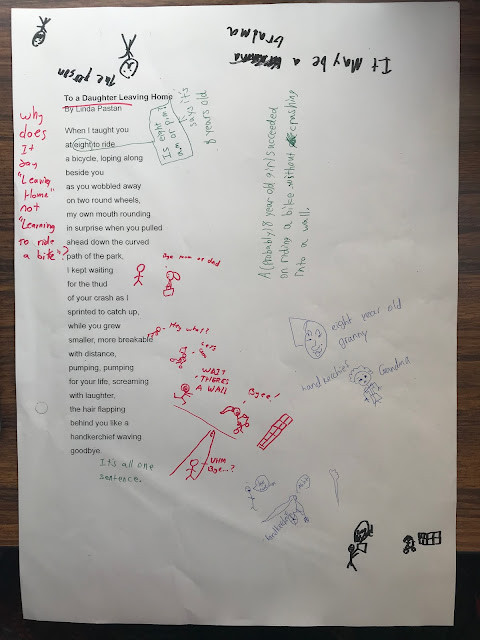 It May be a
grandma
The person
To a Daughter Leaving Home
By Linda Pastan
When I taught you
at eight to ride
a bicycle, loping along
beside you
as you wobbled away
on two round wheels,
my own mouth rounding
in surprise when you pulled
ahead down the curved
path of the park,
I kept waiting
for the thud
of your crash as I
sprinted to catch up,
while you grew
smaller, more breakable
with distance,
pumping, pumping
for your life, screaming
with laughter,
the hair flapping
behind you like a
handkerchief waving
goodbye.
why
does
It
say
"Leaving
Home"
not
"Learning
to ride
a bike"?
Is eight
am or p.m?
it's
says
8 years old
A (Probably) 8 year old girl succeeded
on riding a bike without crashing
into a wall.
Bye mom or dad
Hey what?
WAIT
THERES
A WALL
Byee!
UHM
Bye...?
It's all one
sentence.
eight year old
granny
handkerchief
Grandma